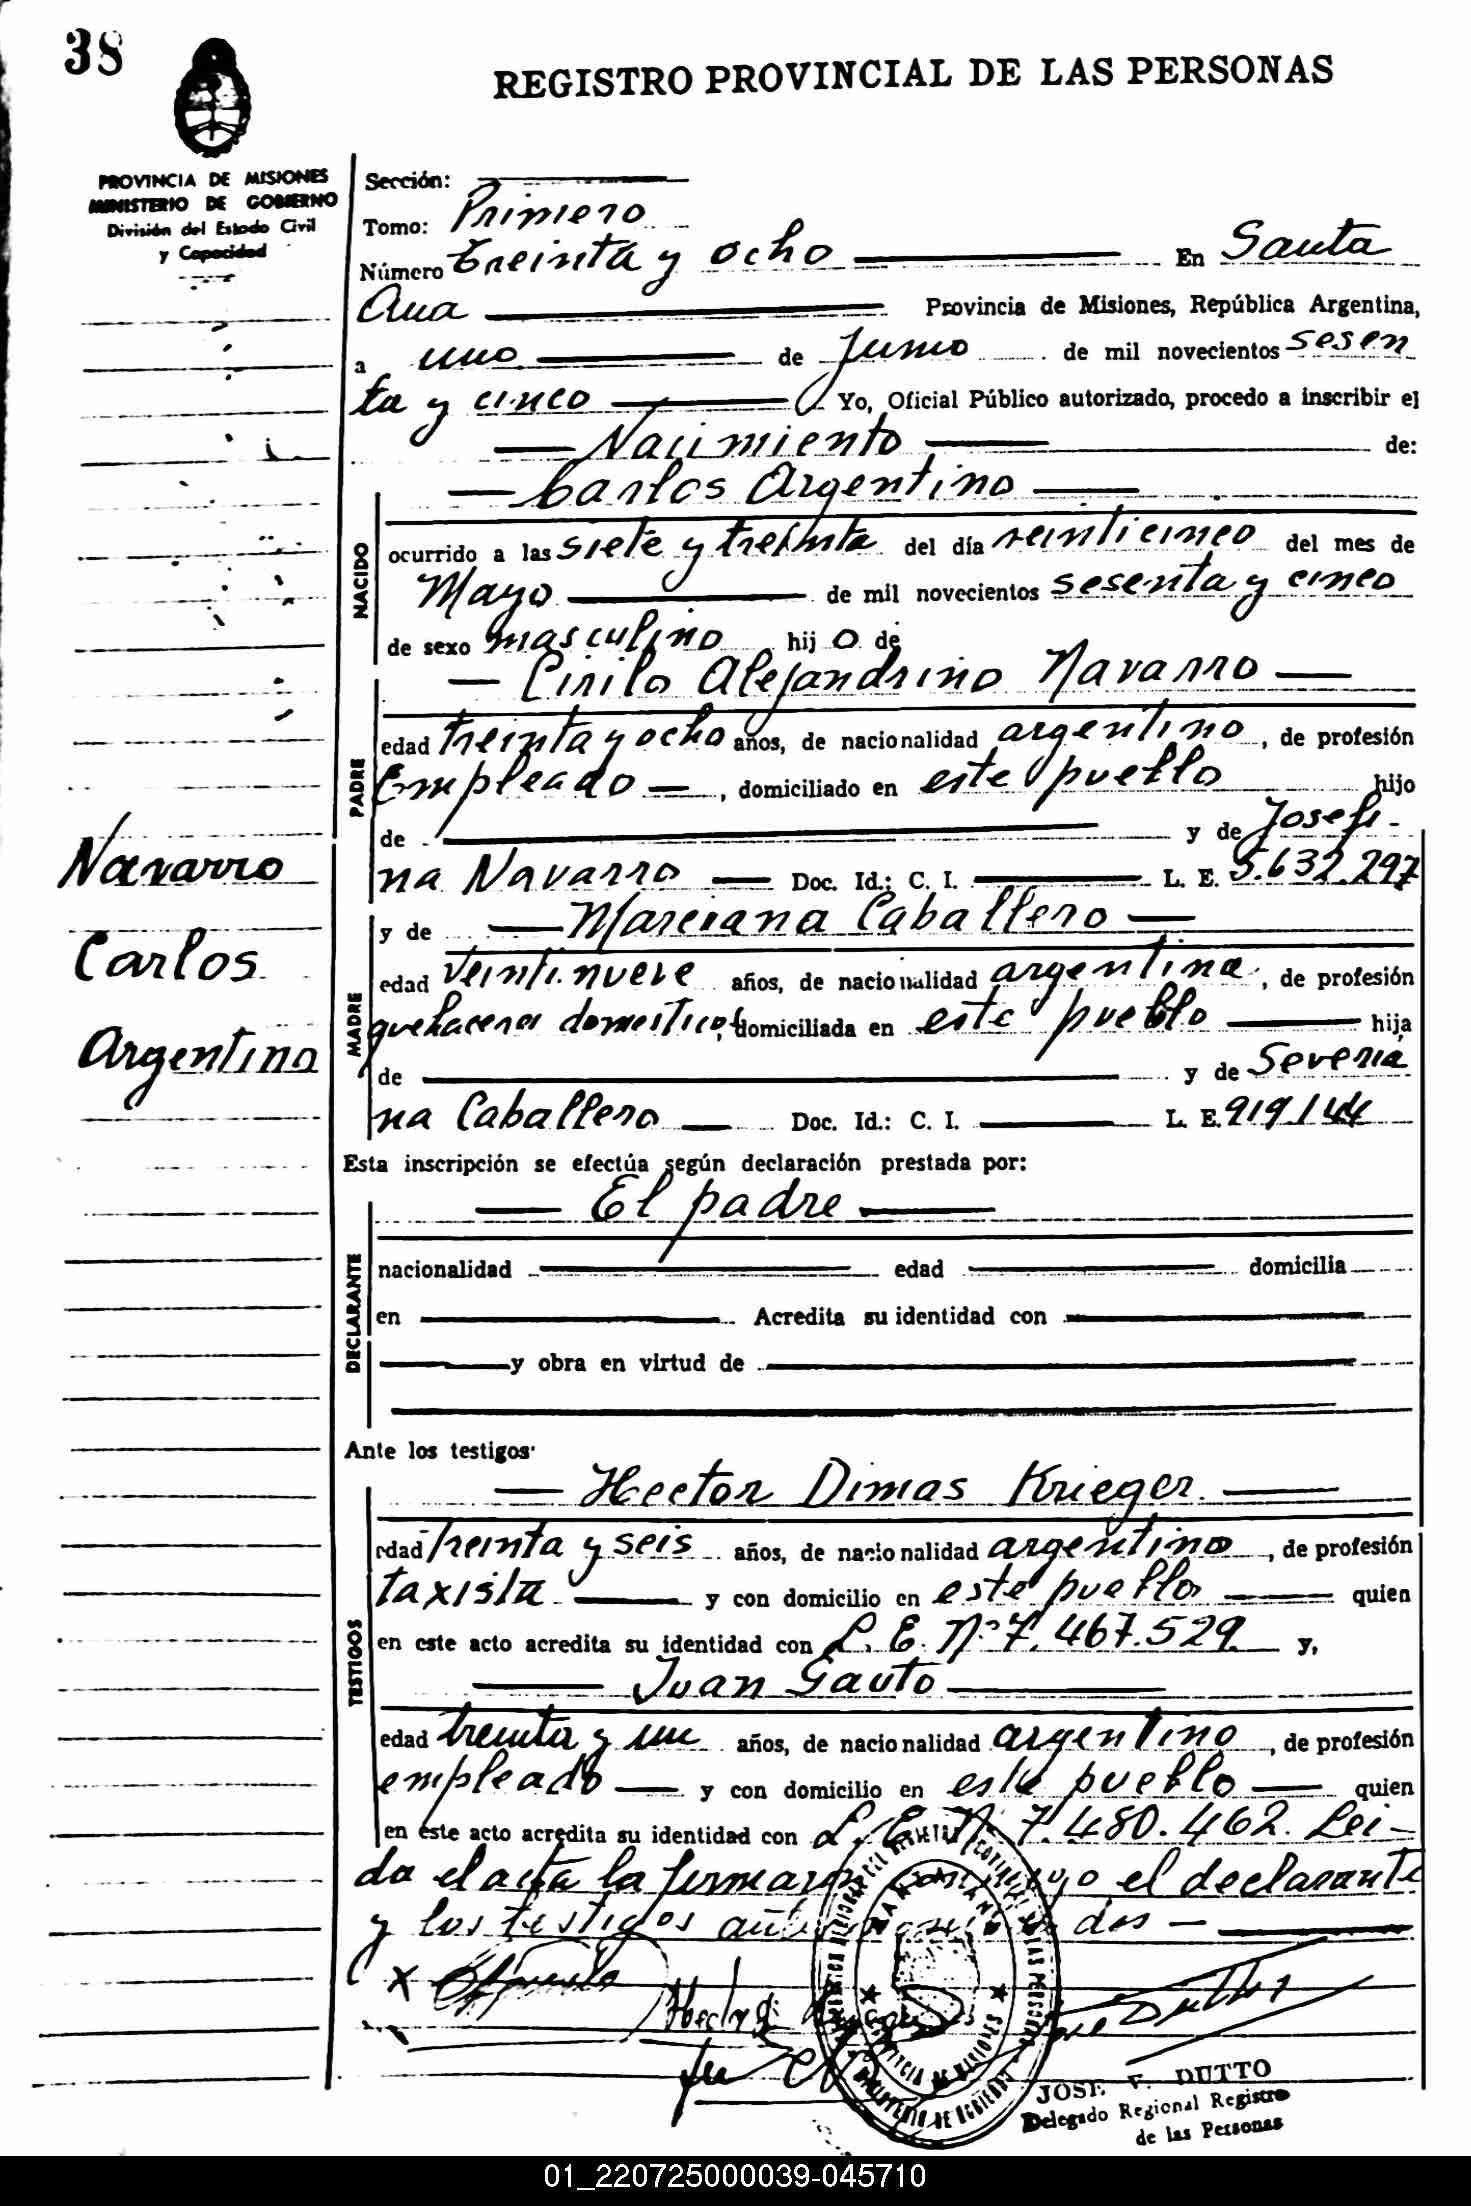 38
REGISTRO PROVINCIAL DE LAS PERSONAS
PROVINCIA DE MISIONES
MINISTERIO DE GOBIERNO
División del Estado Civil
y Capacidad
Sección:
Tomo: Primero
Número Treinta y ocho En Santa
Ana Provincia de Misiones, República Argentina,
a uno de Junio de mil novecientos sesen
ta y cinco Yo, Oficial Público autorizado, procedo a inscribir el
Nacimiento de:
Carlos Argentino
NACIDO
ocurrido a las siete y treinta del día veinticinco del mes de
Mayo de mil novecientos sesenta y cinco
de sexo masculino hij o de
Cirilo Alejandrino Navarro
PADRE
edad treinta y ocho años, de nacionalidad argentino, de profesión
Empleado, domiciliado en este pueblo hijo
de y de Josefi-
na Navarro Doc. Id.: C. I. L. E. 5.632.297
Navarro
Carlos
Argentino
y de Marciana Caballero
MADRE
edad veintinueve años, de nacionalidad argentina, de profesión
quehaceres domésticos, domiciliada en este pueblo hija
de y de Severia
na Caballero Doc. Id.: C. I. L. E. 919.144
Esta inscripción se efectúa según declaración prestada por:
El padre
DECLARANTE
nacionalidad edad domicilia
en Acredita su identidad con
y obra en virtud de
Ante los testigos
Hector Dimas Krieger
TESTIGOS
edad treinta y seis años, de nacionalidad argentino, de profesión
taxista y con domicilio en este pueblo quien
en este acto acredita su identidad con L. E. Nº 7.467.529 y,
Juan Gauto
edad treinta y un años, de nacionalidad argentino, de profesión
empleado y con domicilio en este pueblo quien
en este acto acredita su identidad con L. E. N 7.480.462. Lei-
da el acta la firmaron conmigo el declarante
y los testigos dos
JOSE V. DUTTO
Delegado Regional Registro
de las Personas
01_220725000039-045710